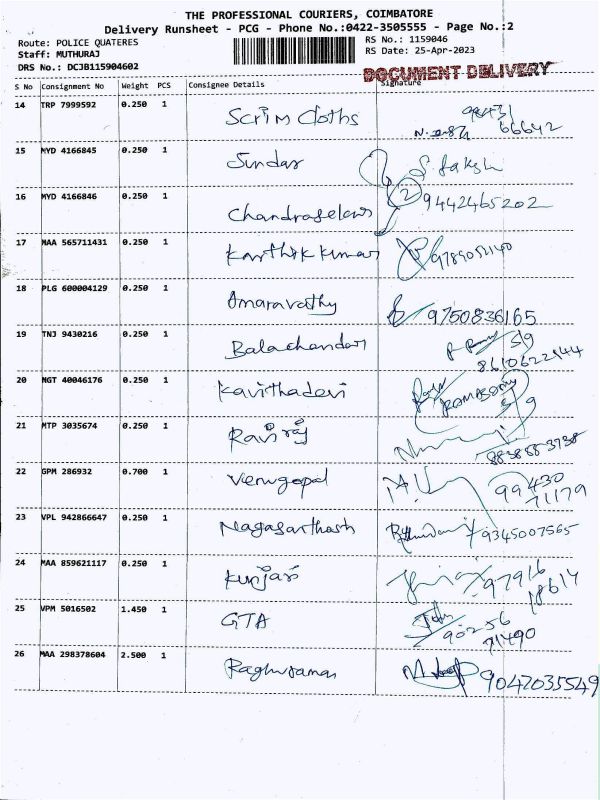 THE PROFESSIONAL COURIERS, COIMBATORE
Delivery Runsheet - PCG - Phone No.:0422-3505555 - Page No.:2
Route: POLICE QUATERES RS No.: 1159046
Staff: MUTHURAJ RS Date: 25-Apr-2023
DRS No.: DCJB115904602
DOCUMENT DELIVERY
S No Consignment No Weight PCS Consignee Details Signature
14 TRP 7999592 0.250 1 Scrim Cloths 98431
66642
15 MYD 4166845 0.250 1 Sundar
16 MYD 4166846 0.250 1 Chandraselan 9442465202
17 MAA 565711431 0.250 1 Karthik kumar
18 PLG 600004129 0.250 1 Amaravathy 9750836165
19 TNJ 9430216 0.250 1 Balachandar
8610622444
20 NGT 40046176 0.250 1 Kavithadevi RAMASAMY
21 MTP 3035674 0.250 1 Raviraj
22 GPM 286932 0.700 1 Venugopal 99430
71179
23 VPL 942866647 0.250 1 Nagasanthosh 9345007565
24 MAA 859621117 0.250 1 Kunjari 97916
18614
25 VPM 5016502 1.450 1 GTA 90256
71490
26 MAA 298378604 2.500 1 Raghuraman 9047035549